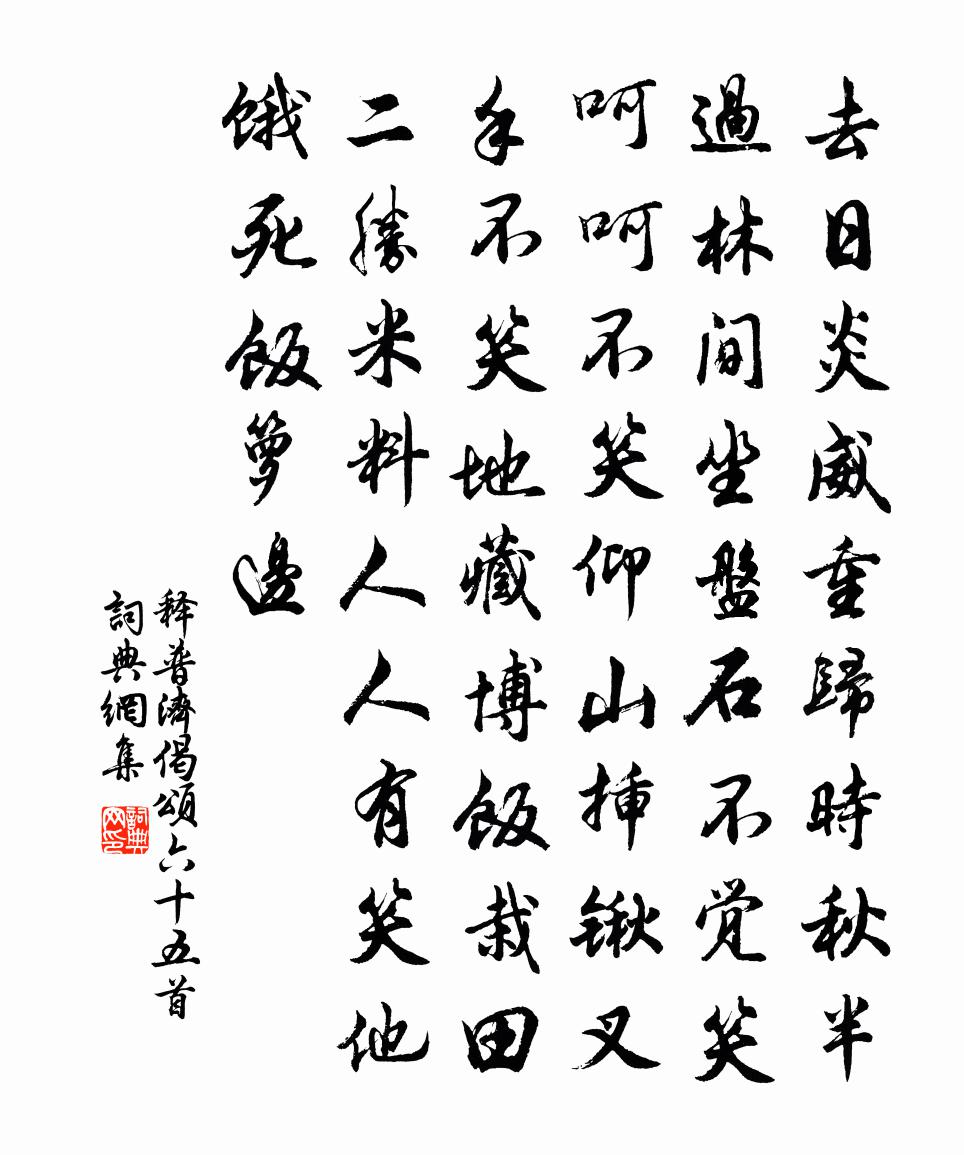 去日炎威重歸時秋半
過林間坐盤石不觉笑
呵呵不笑仰山挿锹叉
手不笑地藏博饭栽田
二勝米料人人有笑他
饿死饭箩邊
释普濟偈頌六十五首
詞典網集
詞典网印